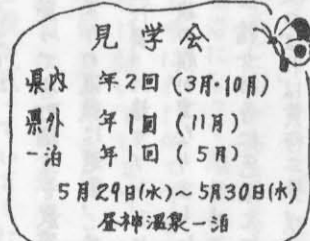 見学会
県内 年2回(3月・10月)
県外 年1回(11月)
一泊 年1回(5月)
5月29日(水)~5月30日(木)
昼神温泉一泊